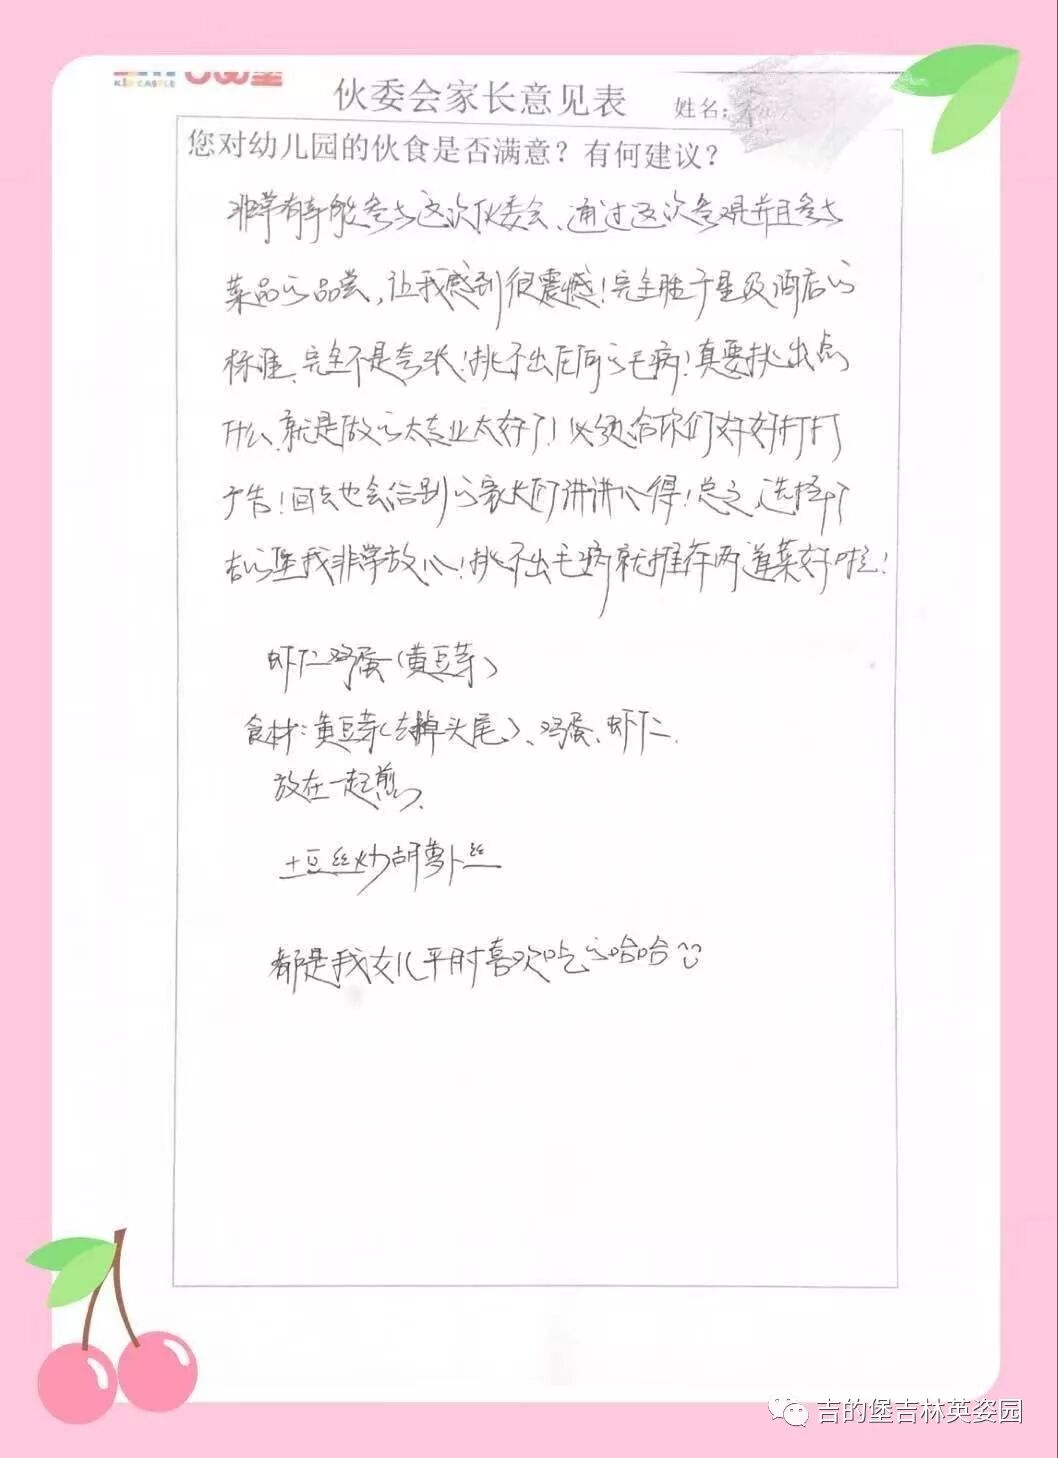 KID CASTLE
伙委会家长意见表
姓名:
您对幼儿园的伙食是否满意？有何建议？
非常有幸能参与这次伙委会、通过这次参观并且参与
菜品的品尝，让我感到很震憾！完全胜于星级酒店的
标准、完全不是夸张！挑不出任何的毛病！真要挑出点
什么、就是做的太专业太好了！必须给你们好好打打
广告！回去也会给别的家长们讲讲心得！总之、选择了
吉的堡我非常放心！挑不出毛病就推荐两道菜好啦！
虾仁鸡蛋（黄豆芽）
食材：黄豆芽（去掉头尾）、鸡蛋、虾仁.
放在一起煎.
土豆丝炒胡萝卜丝
都是我女儿平时喜欢吃的哈哈
吉的堡吉林英姿园